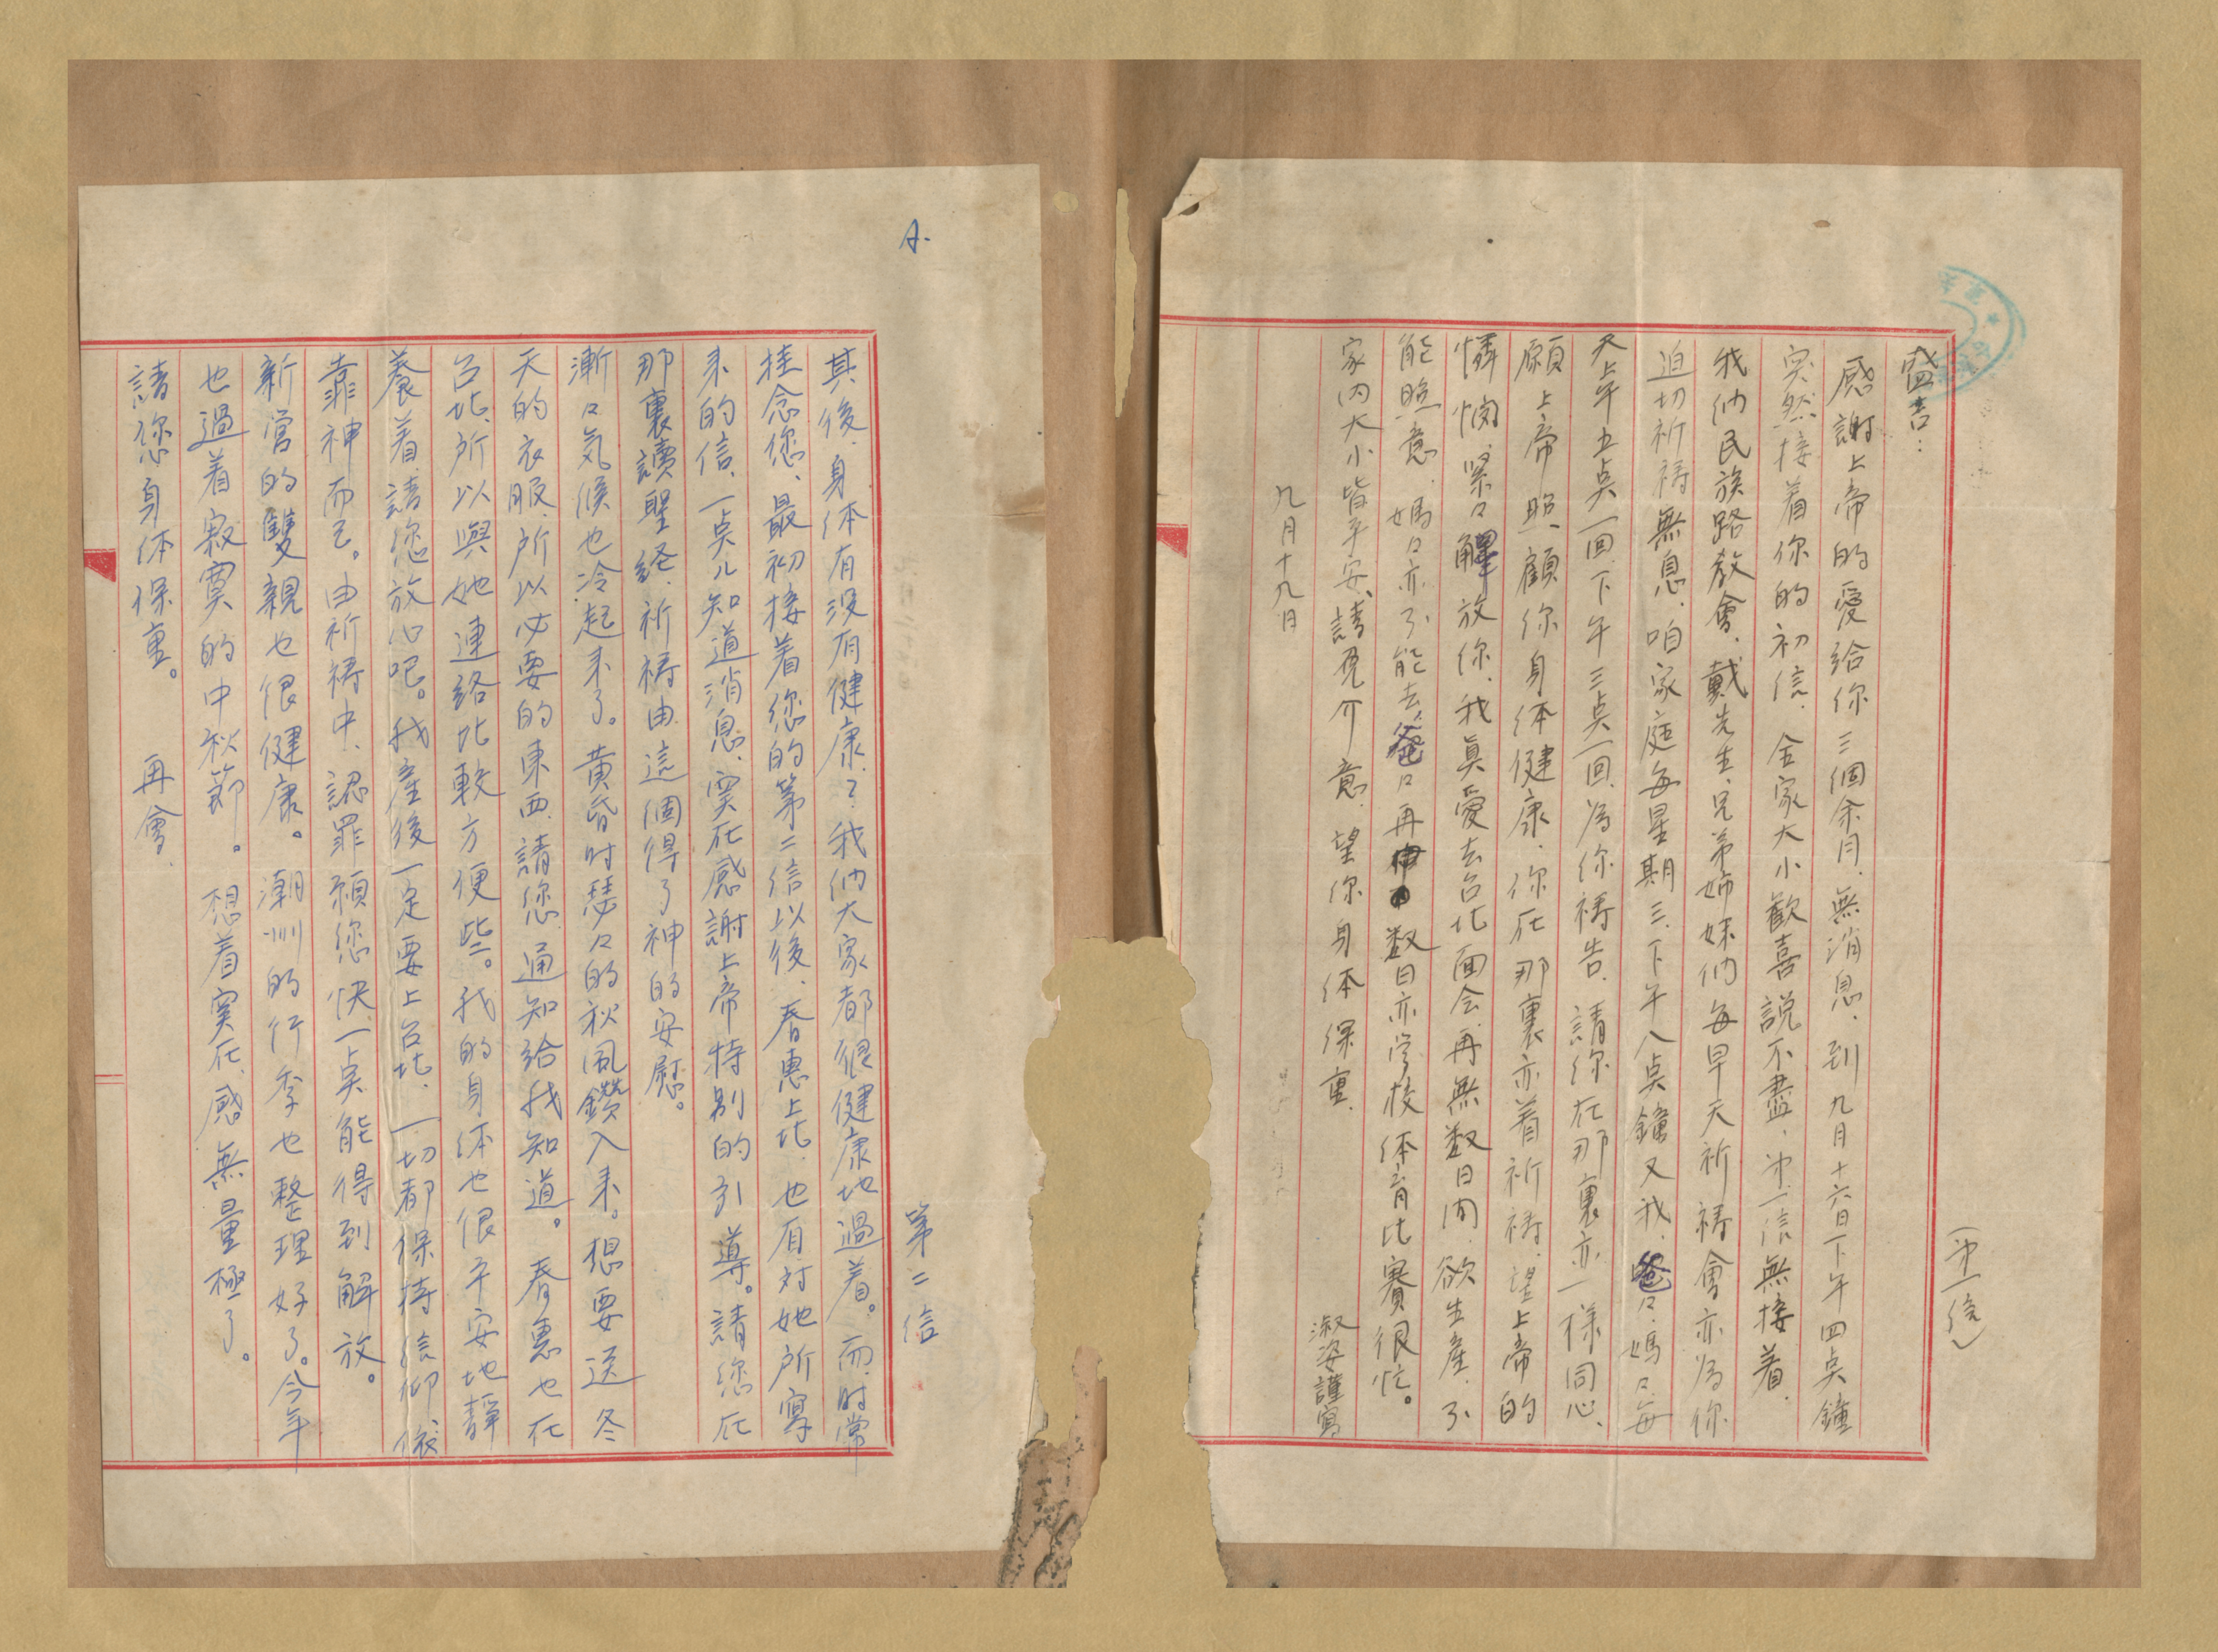 (第一信)
盛吉:
感謝上帝的愛給你三個余月、無消息、到九月十六日下午四点鐘
突然接着你的初信、全家大小歡喜説不盡、第一信無接着、
我們民族路教會、戴先生、兄弟姉妹們每早天祈禱會亦為你
迫切祈禱無息、咱家庭每星期三、下午八点鐘又我、爸々、媽々、每
天上午五点一回、下午三点一回、為你禱告、請你在那裏亦一様同心、
願上帝照顧你身体健康、你在那裏亦着祈禱、望上帝的
憐憫、緊々釋放你、我真愛去台北面会、再無数日内、欲生産、不
能照意、媽々亦不能去、爸々再数日亦学校体育比賽很忙。
家内大小皆平安、請免介意、望你身体保重、
淑姿謹寫
九月十九日
A.
第二信
其後、身体有没有健康?我們大家都很健康地過着。而、時常
挂念您、最初接着您的第二信以後、春惠上北、也有対她所寫
来的信、一点儿知道消息、実在感謝上帝特別的引導。請您在
那裏讀聖経、祈禱由這個得了神的安慰。
漸々気候也冷起来了。黄昏时瑟々的秋風鑽入来。想要送冬
天的衣服、所以必要的東西、請您通知給我知道。春惠也在
台北、所以與她連絡比較方便些。我的身体也很平安地靜
養着、請您放心吧。我産後一定要上台北、一切都保持信仰依
靠神而已。由祈禱中、認罪願您快一点能得到解放。
新営的雙親也很健康。潮州的行李也整理好了。今年
也過着寂寞的中秋節。想着実在感無量極了。
請您身体保重。再會、